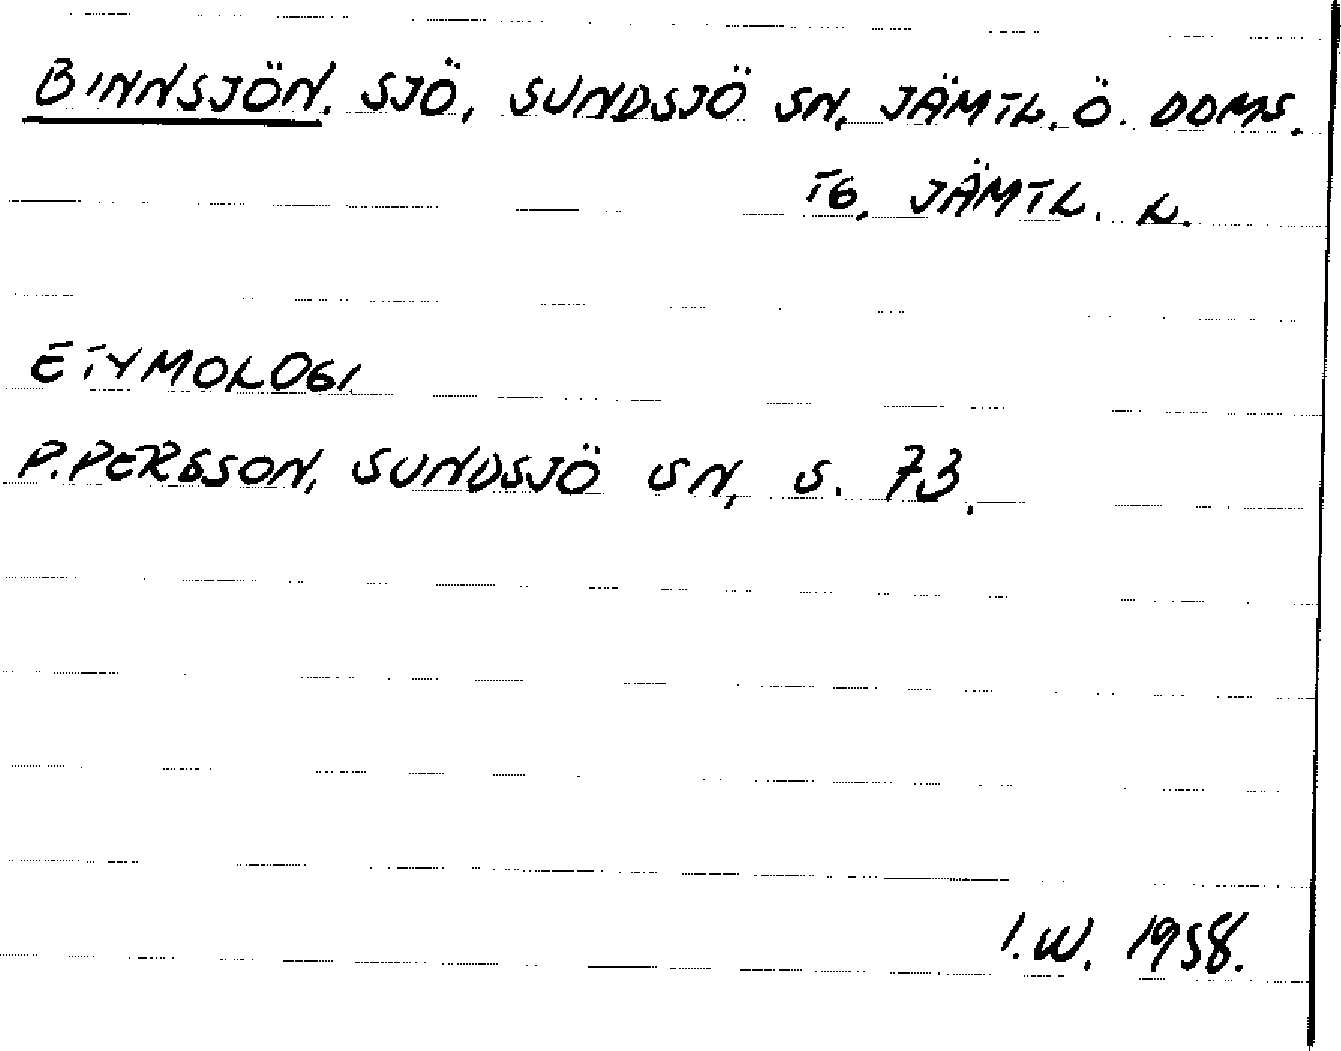 BINNSJÖN. SJÖ, SUNDSJÖ SN, JÄMTL. Ö. DOMS.
TG, JÄMTL. L.
ETYMOLOGI
P. PERSSON, SUNDSJÖ SN, S. 73.
I.W. 1958.